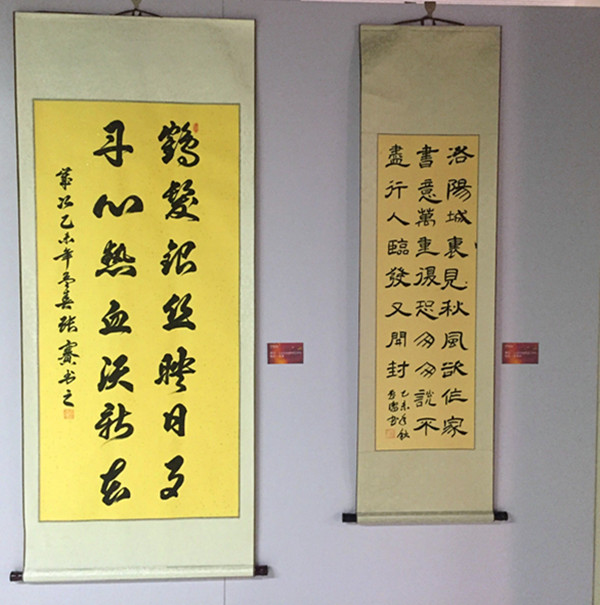 鶴髮银丝映日月
丹心热血沃新花
歲次乙未年孟春张
书之
洛陽城裏見秋風欲作家
書意萬重復恐匆匆說不
盡行人臨發又開封
乙未年